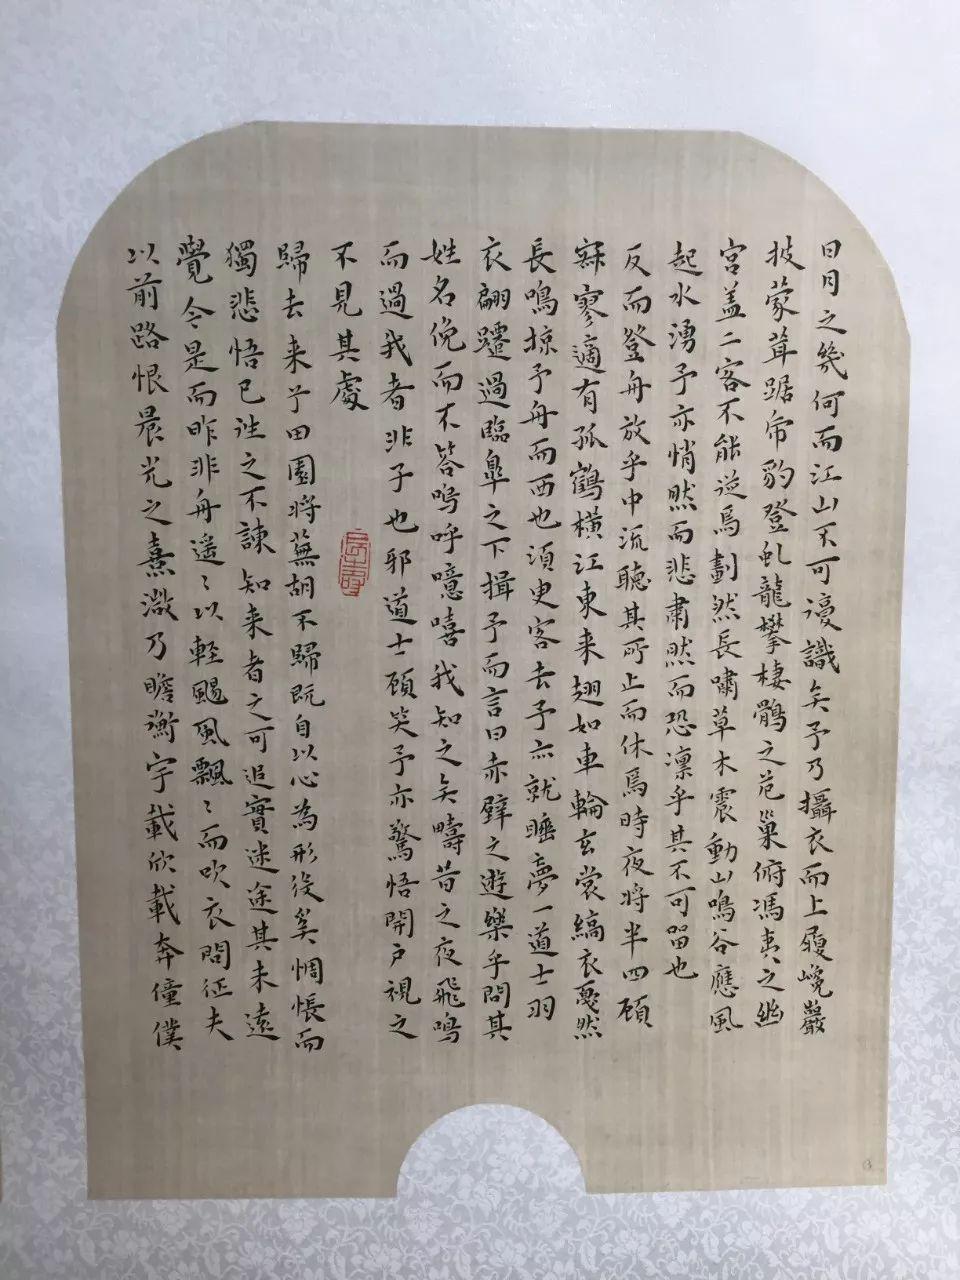 日月之幾何而江山不可復識矣予乃攝衣而上履巉巖
披蒙茸踞虎豹登虬龍攀棲鶻之危巢俯馮夷之幽
宮盖二客不能從焉劃然長嘯草木震動山鳴谷應風
起水湧予亦悄然而悲肅然而恐凛乎其不可留也
反而登舟放乎中流聽其所止而休焉時夜将半四顧
寂寥適有孤鶴橫江東来翅如車輪玄裳縞衣戛然
長鳴掠予舟而西也須臾客去予亦就睡夢一道士羽
衣翩躚過臨臯之下揖予而言曰赤壁之遊樂乎問其
姓名俛而不答嗚呼噫嘻我知之矣疇昔之夜飛鳴
而過我者非子也邪道士顧笑予亦驚悟開户視之
不見其處
長壽
歸去来兮田園将蕪胡不歸既自以心為形役奚惆悵而
獨悲悟已往之不諫知来者之可追實迷途其未遠
覺今是而昨非舟遥〻以輕颺風飄〻而吹衣問征夫
以前路恨晨光之熹微乃瞻衡宇載欣載奔僮僕